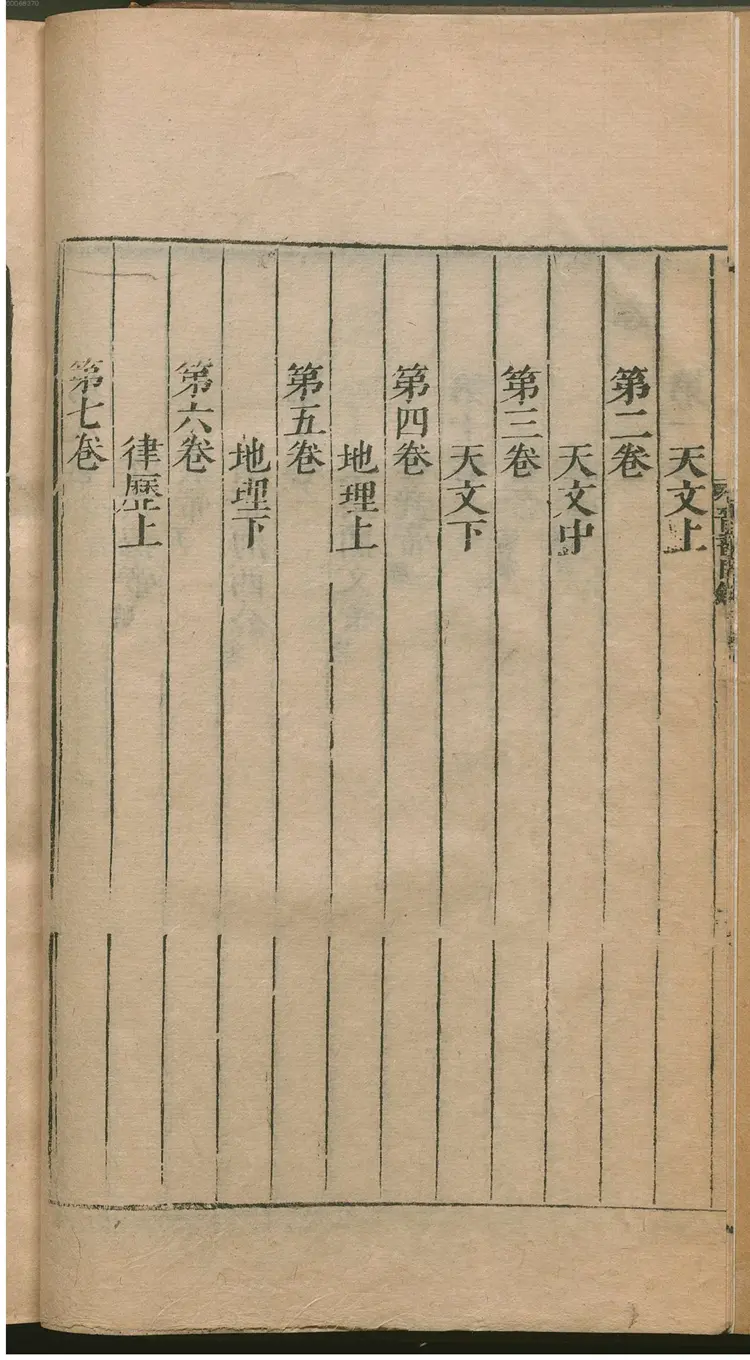 天文上
第二卷
天文中
第三卷
天文下
第四卷
地理上
第五卷
地理下
第六卷
律歷上
第七卷
晉書目錄